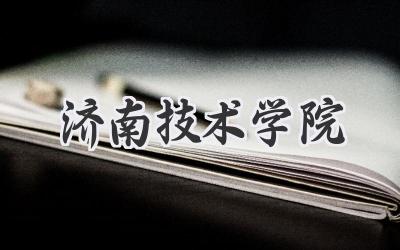 济南技术学院